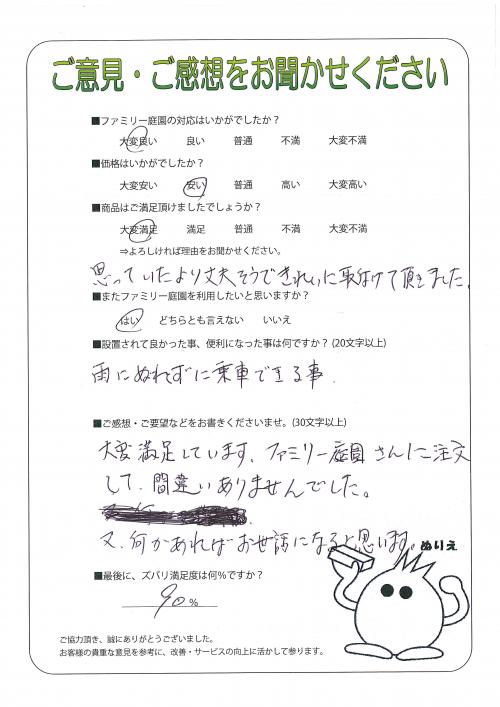 ご意見・ご感想をお聞かせください
■ファミリー庭園の対応はいかがでしたか？
大変良い 良い 普通 不満 大変不満
■価格はいかがでしたか？
大変安い 安い 普通 高い 大変高い
■商品はご満足頂けましたでしょうか？
大変満足 満足 普通 不満 大変不満
⇒よろしければ理由をお聞かせください。
思っていたより丈夫そうできれいに取付けて頂きました。
■またファミリー庭園を利用したいと思いますか？
はい どちらとも言えない いいえ
■設置されて良かった事、便利になった事は何ですか？(20文字以上)
雨にぬれずに乗車できる事.
■ご感想・ご要望などをお書きくださいませ。(30文字以上)
大変満足しています、ファミリー庭園さんに注文
して、間違いありませんでした。
又、何かあればお世話になると思います。
ぬりえ
■最後に、ズバリ満足度は何%ですか？
90%
ご協力頂き、誠にありがとうございました。
お客様の貴重な意見を参考に、改善・サービスの向上に活かして参ります。